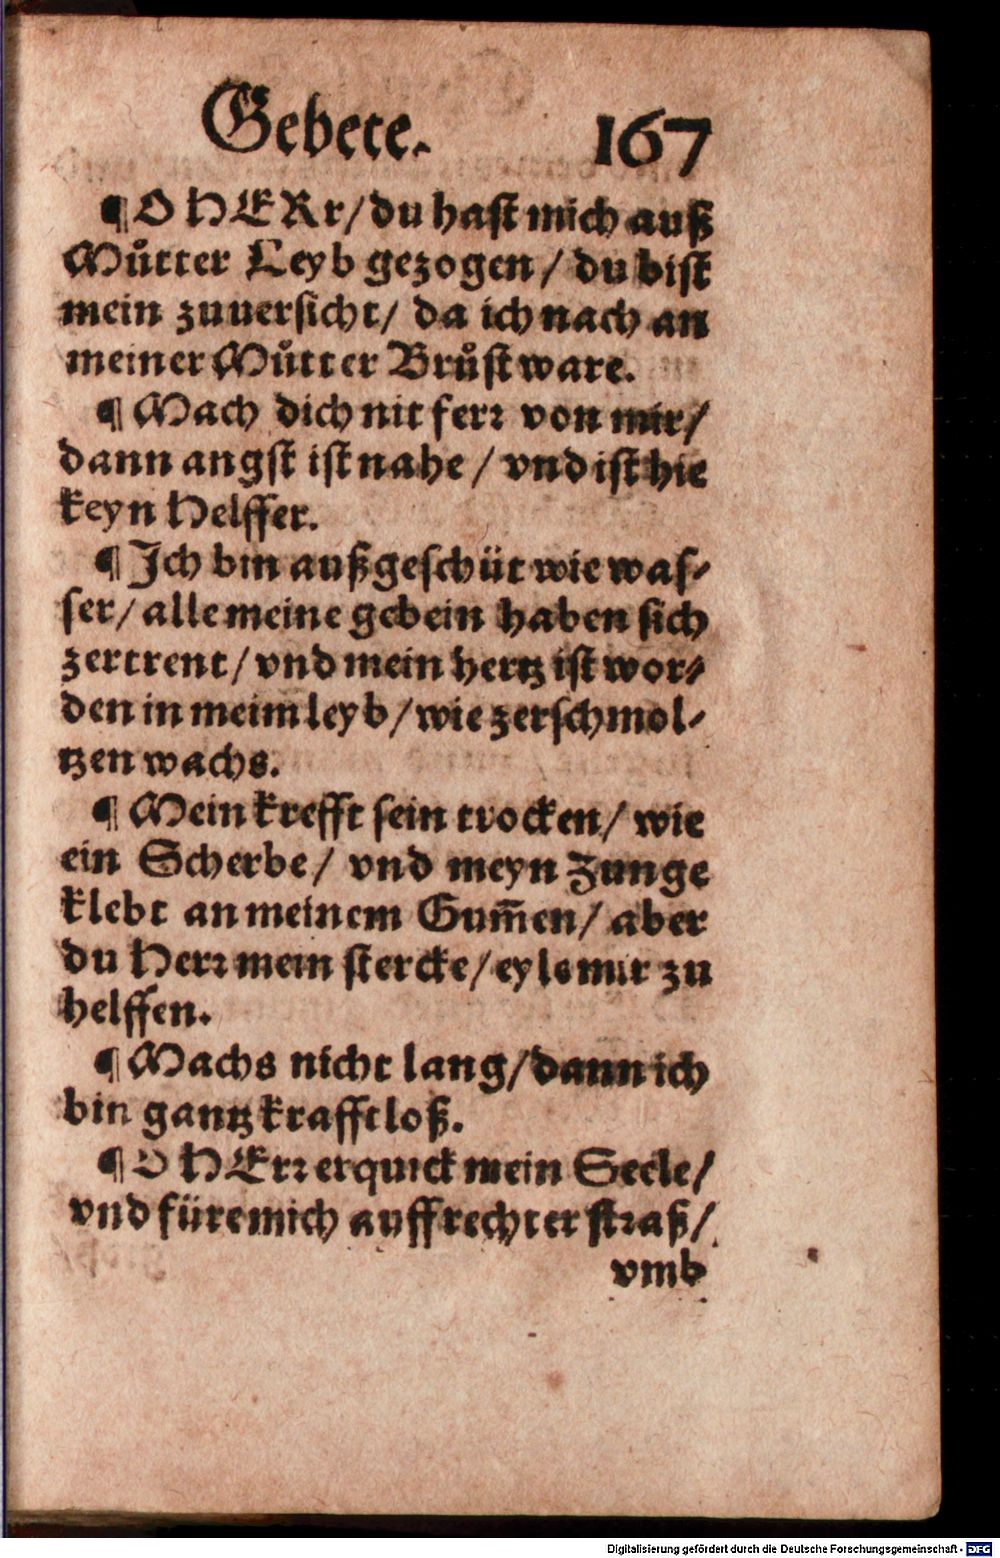 Gebete. 167
¶ O HERr/ du hast mich auß
Můtter Leyb gezogen/ du bist
mein zuuersicht/ da ich nach an
meiner Můtter Brůst ware.
¶ Mach dich nit ferꝛ von mir/
dann angst ist nahe/ vnd ist hie
keyn Helffer.
¶ Ich bin außgeschüt wie was-
ser/ alle meine gebein haben sich
zertrent/ vnd mein hertz ist wor-
den in meim leyb/ wie zerschmol-
tzen wachs.
¶ Mein krefft sein trocken/ wie
ein Scherbe/ vnd meyn Zunge
klebt an meinem Gum̃en/ aber
du Herꝛ mein stercke/ eyle mir zu
helffen.
¶ Machs nicht lang/ dann ich
bin gantz krafftloß.
¶ O HErꝛ erquick mein Seele/
vnd füre mich auff rechter stꝛaß/
vmb
Digitalisierung gefördert durch die Deutsche Forschungsgemeinschaft - DFG